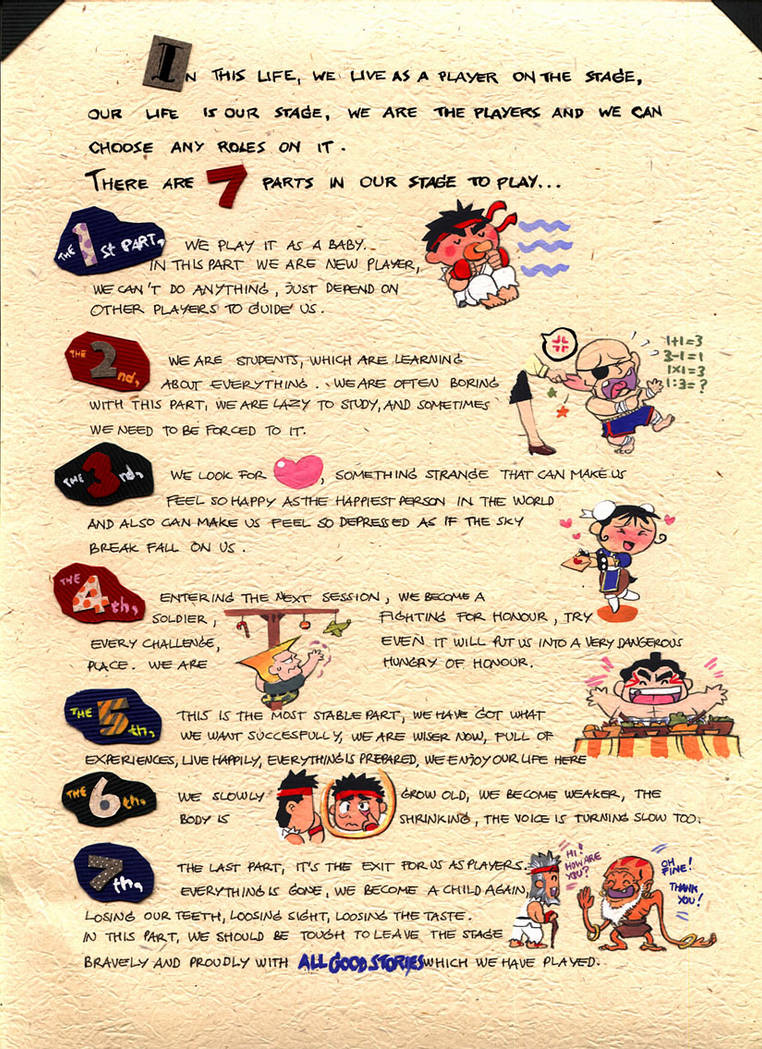 IN THIS LIFE, WE LIVE AS A PLAYER ON THE STAGE,
OUR LIFE IS OUR STAGE, WE ARE THE PLAYERS AND WE CAN
CHOOSE ANY ROLES ON IT.
THERE ARE 7 PARTS IN OUR STAGE TO PLAY...
THE 1st PART, WE PLAY IT AS A BABY.
IN THIS PART WE ARE NEW PLAYER,
WE CAN'T DO ANYTHING, JUST DEPEND ON
OTHER PLAYERS TO GUIDE US.
THE 2nd, WE ARE STUDENTS, WHICH ARE LEARNING
ABOUT EVERYTHING. WE ARE OFTEN BORING
WITH THIS PART, WE ARE LAZY TO STUDY, AND SOMETIMES
WE NEED TO BE FORCED TO IT.
1+1=3
3-1=1
1x1=3
1:3=?
THE 3rd, WE LOOK FOR , SOMETHING STRANGE THAT CAN MAKE US
FEEL SO HAPPY AS THE HAPPIEST PERSON IN THE WORLD
AND ALSO CAN MAKE US FEEL SO DEPRESSED AS IF THE SKY
BREAK FALL ON US.
THE 4th, ENTERING THE NEXT SESSION, WE BECOME A
SOLDIER, FIGHTING FOR HONOUR, TRY
EVERY CHALLENGE, EVEN IT WILL PUT US INTO A VERY DANGEROUS
PLACE. WE ARE HUNGRY OF HONOUR.
THE 5th, THIS IS THE MOST STABLE PART, WE HAVE GOT WHAT
WE WANT SUCCESFULLY, WE ARE WISER NOW, FULL OF
EXPERIENCES, LIVE HAPPILY, EVERYTHING IS PREPARED, WE ENJOY OUR LIFE HERE
THE 6th, WE SLOWLY GROW OLD, WE BECOME WEAKER, THE
BODY IS SHRINKING, THE VOICE IS TURNING SLOW TOO.
7th, THE LAST PART, IT'S THE EXIT FOR US AS PLAYERS.
EVERYTHING IS GONE, WE BECOME A CHILD AGAIN,
LOSING OUR TEETH, LOOSING SIGHT, LOOSING THE TASTE.
IN THIS PART, WE SHOULD BE TOUGH TO LEAVE THE STAGE
BRAVELY AND PROUDLY WITH ALL GOOD STORIES WHICH WE HAVE PLAYED.
HI!
HOW ARE
YOU?
OH
FINE!
THANK
YOU!